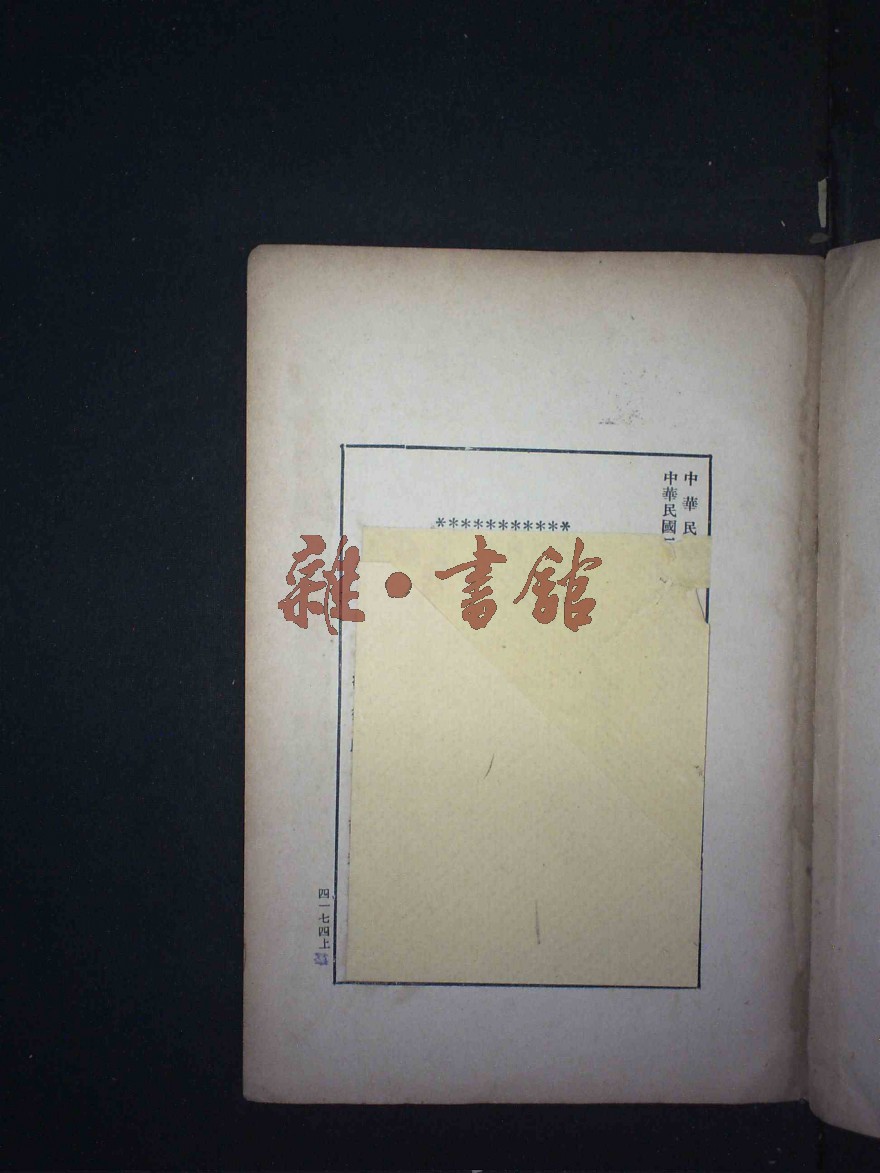 中華民
中華民國
***********
雜·書館
四一七四上